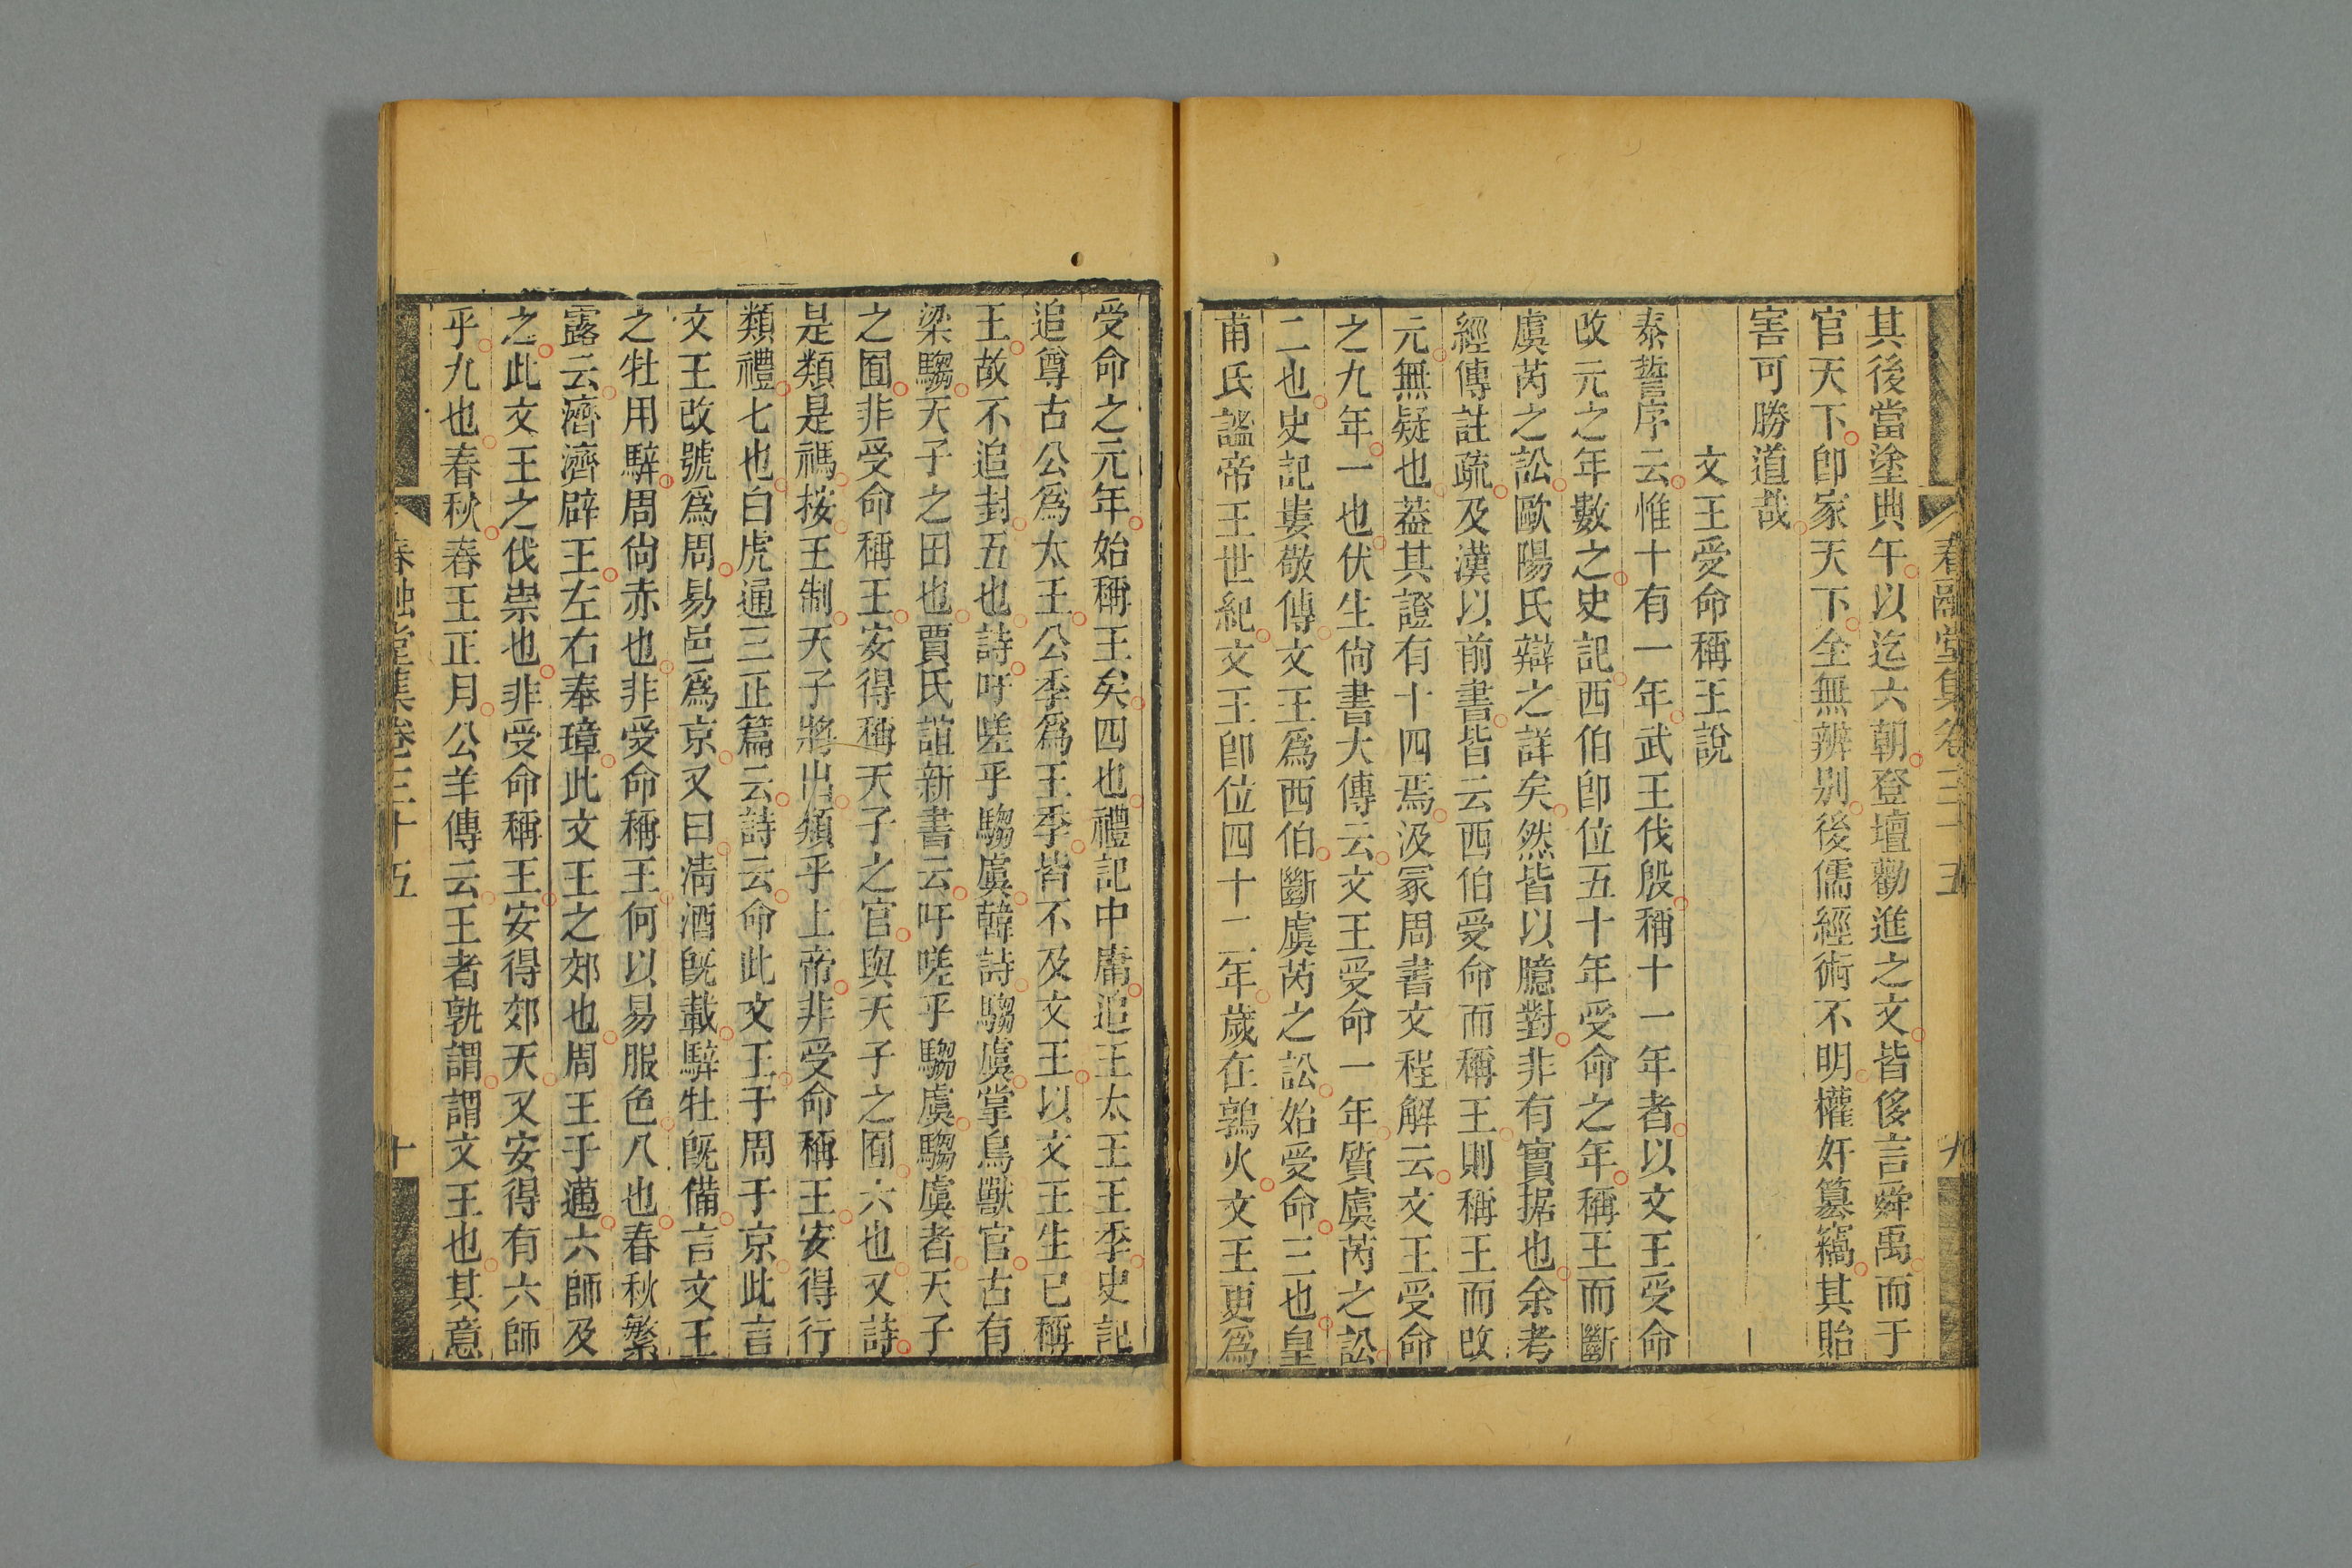 春融堂集卷三十五
九
其後當塗典午以迄六朝登壇勸進之文皆侈言舜禹而于
官天下卽家天下全無辨別後儒經術不明權奸篡竊其貽
害可勝道哉
文王受命稱王說
泰誓序云惟十有一年武王伐殷稱十一年者以文王受命
改元之年數之史記西伯卽位五十年受命之年稱王而斷
虞芮之訟歐陽氏辯之詳矣然皆以臆對非有實据也余考
經傳註疏及漢以前書皆云西伯受命而稱王則稱王而改
元無疑也葢其證有十四焉汲冢周書文程解云文王受命
之九年一也伏生尙書大傳云文王受命一年質虞芮之訟
二也史記婁敬傳文王爲西伯斷虞芮之訟始受命三也皇
甫氏謐帝王世紀文王卽位四十二年歲在鶉火文王更爲
受命之元年始稱王矣四也禮記中庸追王太王王季史記
追尊古公爲太王公季爲王季皆不及文王以文王生已稱
王故不追封五也詩吁嗟乎騶虞韓詩騶虞掌鳥獸官古有
梁騶天子之田也賈氏誼新書云吁嗟乎騶虞騶虞者天子
之囿非受命稱王安得稱天子之官與天子之囿六也又詩
是類是禡按王制天子將出類乎上帝非受命稱王安得行
類禮七也白虎通三正篇云詩云命此文王于周于京此言
文王改號爲周易邑爲京又曰淸酒旣載騂牡旣備言文王
之牡用騂周尙赤也非受命稱王何以易服色八也春秋繁
露云濟濟辟王左右奉璋此文王之郊也周王于邁六師及
之此文王之伐崇也非受命稱王安得郊天又安得有六師
乎九也春秋春王正月公羊傳云王者孰謂謂文王也其意
春融堂集卷三十五
十